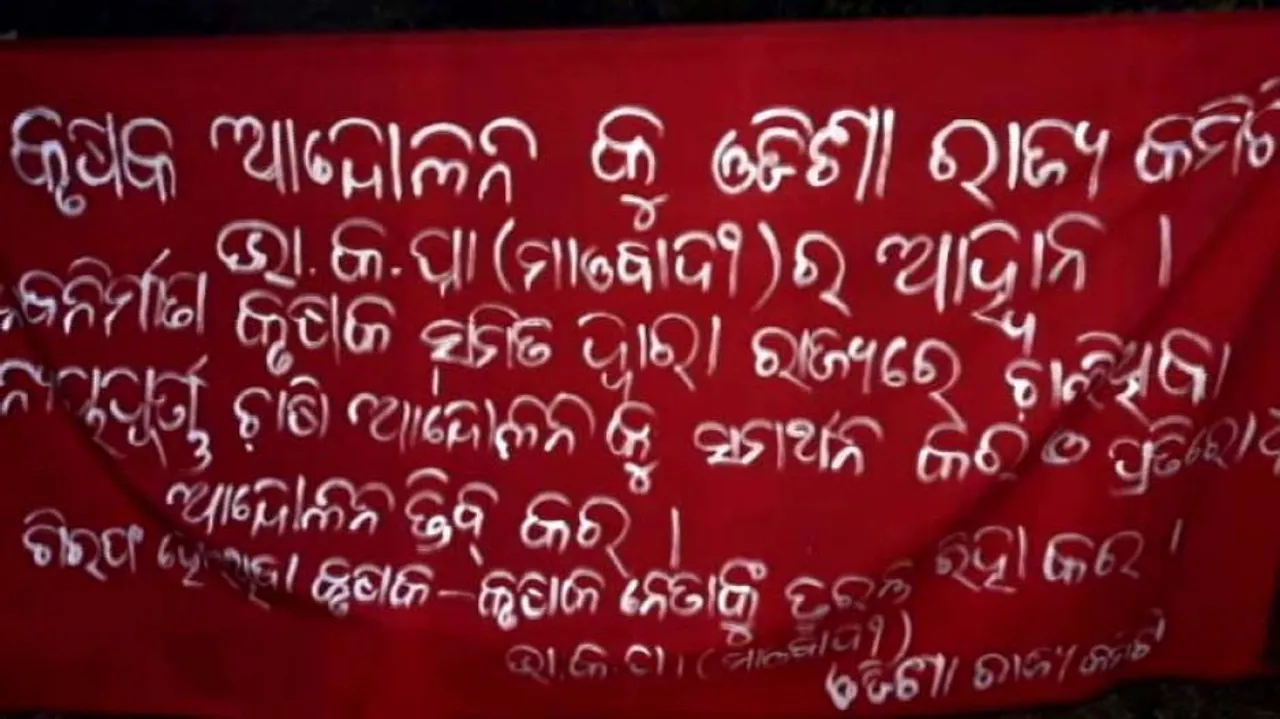 କୃଷକ ଆନ୍ଦୋଳନ କୁ ଓଡିଶା ରାଜ୍ୟ କମିଟି
ଭା.କ.ପା (ମାଓବାଦୀ)ର ଆହ୍ୱାନ ।
ନବନିର୍ମାଣ କୃଷକ ସମିତି ଦ୍ୱାରା ରାଜ୍ୟରେ ଚାଲିଥିବା
ଚାଷୀ ଆନ୍ଦୋଳନ କୁ ସମର୍ଥନ କର ଓ ପ୍ରତିରୋଧ
ଆନ୍ଦୋଳନ ତିବ୍ର କର ।
ଗିରଫ ହୋଇଥିବା କୃଷକ – କୃଷକ ନେତାକୁଁ ତୁରନ୍ତ ରିହା କର ।
ଭା.କ.ପା (ମାଓବାଦୀ)
ଓଡିଶା ରାଜ୍ୟ କମିଟି